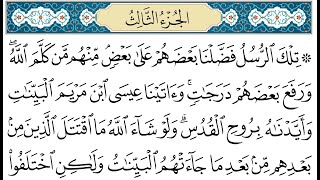 الجزء الثالث
۞ تِلْكَ ٱلرُّسُلُ فَضَّلْنَا بَعْضَهُمْ عَلَىٰ بَعْضٍۘ مِّنْهُم مَّن كَلَّمَ ٱللَّهُۖ
وَرَفَعَ بَعْضَهُمْ دَرَجَٰتٍۚ وَءَاتَيْنَا عِيسَى ٱبْنَ مَرْيَمَ ٱلْبَيِّنَٰتِ
وَأَيَّدْنَٰهُ بِرُوحِ ٱلْقُدُسِۗ وَلَوْ شَآءَ ٱللَّهُ مَا ٱقْتَتَلَ ٱلَّذِينَ مِنۢ
بَعْدِهِم مِّنۢ بَعْدِ مَا جَآءَتْهُمُ ٱلْبَيِّنَٰتُ وَلَٰكِنِ ٱخْتَلَفُوا۟